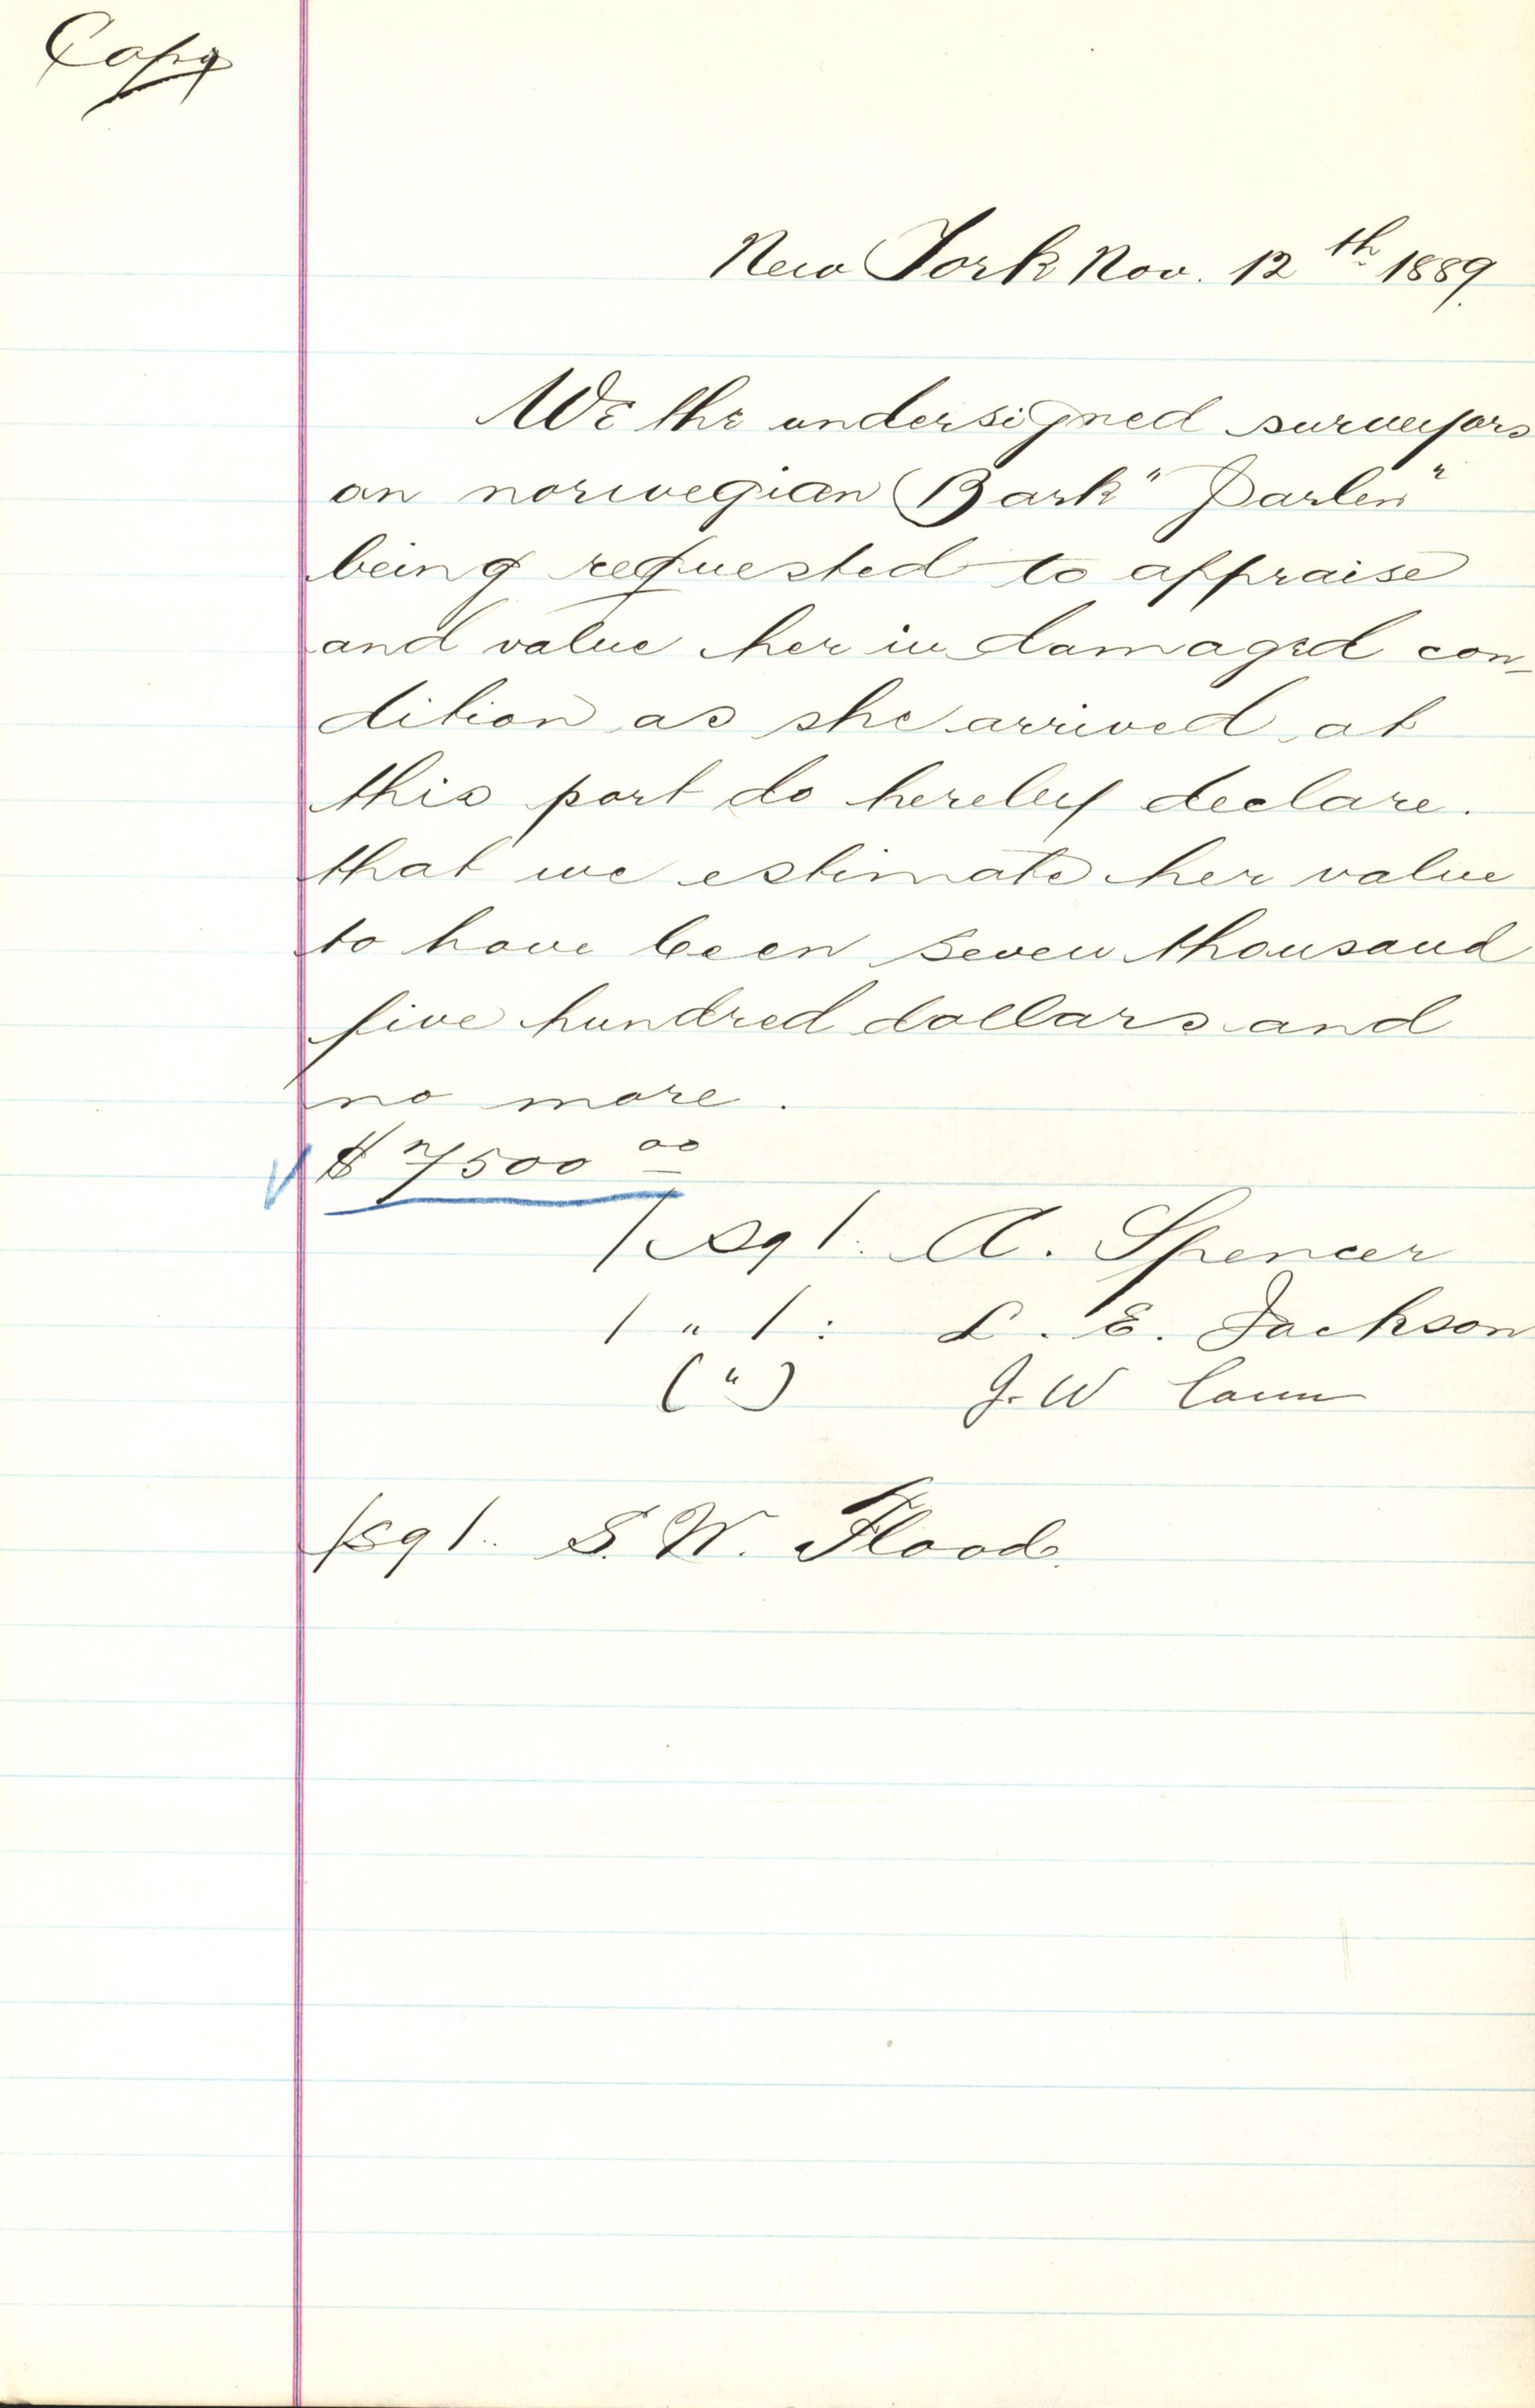 Copy
New York Nov. 12th 1889.
We the undersigned surveyors
on norwegian Bark "
being requested to appraise
and value her in damaged con-
dition as she arrived at
this port do hereby declare.
that we estimate her value
to have been seven thousand
five hundred dollars and
no more.
$ 7500 00
/sg/. A. Spencer
/ " /: L. E. Jackson
(") J. W
/sg/. S. W. Flood.